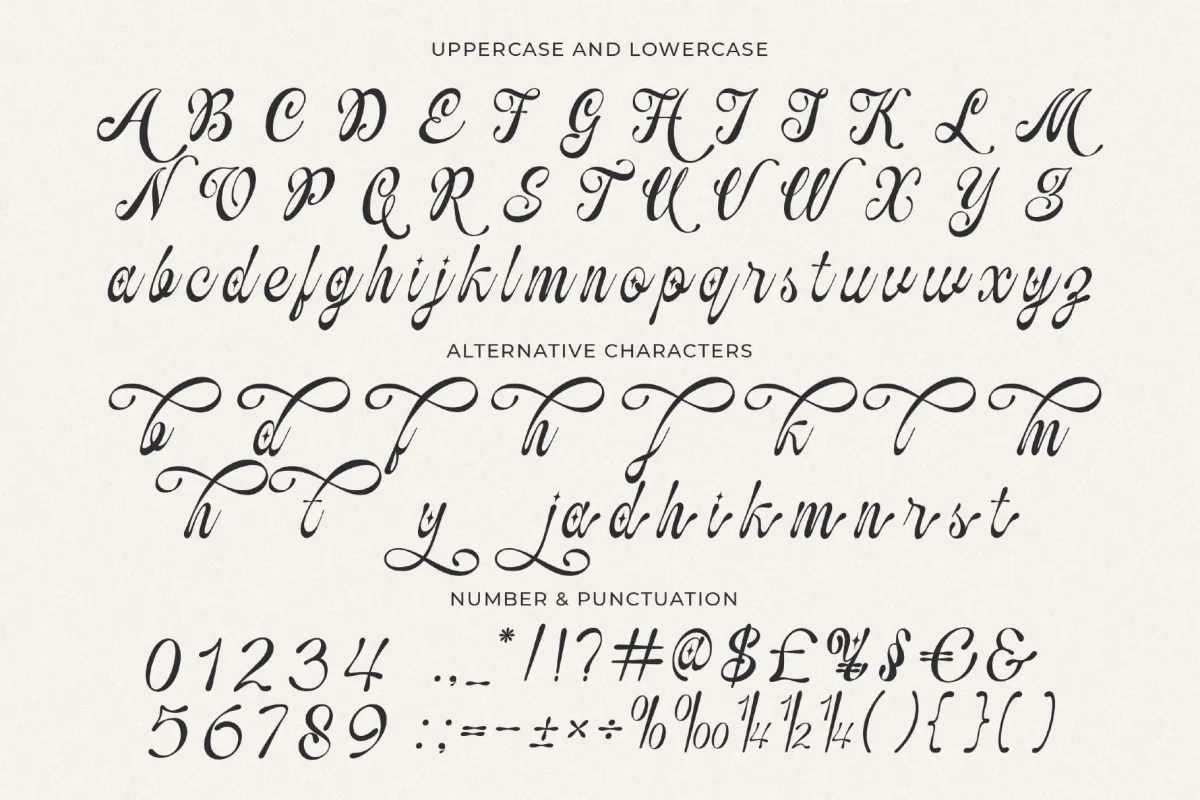 UPPERCASE AND LOWERCASE
A B C D E F G H I J K L M
N O P Q R S T U V W X Y Z
a b c d e f g h i j k l m n o p q r s t u v w x y z
ALTERNATIVE CHARACTERS
b d f h j k l m
h t y j a d h i k m n r s t
NUMBER & PUNCTUATION
0 1 2 3 4 . , _ * / ! ? # @ $ £ ¥ § € &
5 6 7 8 9 : ; = - ± × ÷ % ‰ ¼ ½ ¼ ( ) { } ( )